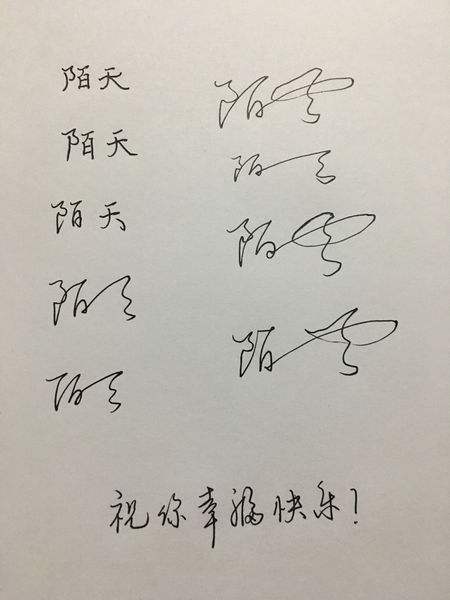 陌天
陌天
陌天
陌天
陌天
陌天
陌天
陌天
陌天
祝你幸福快乐！